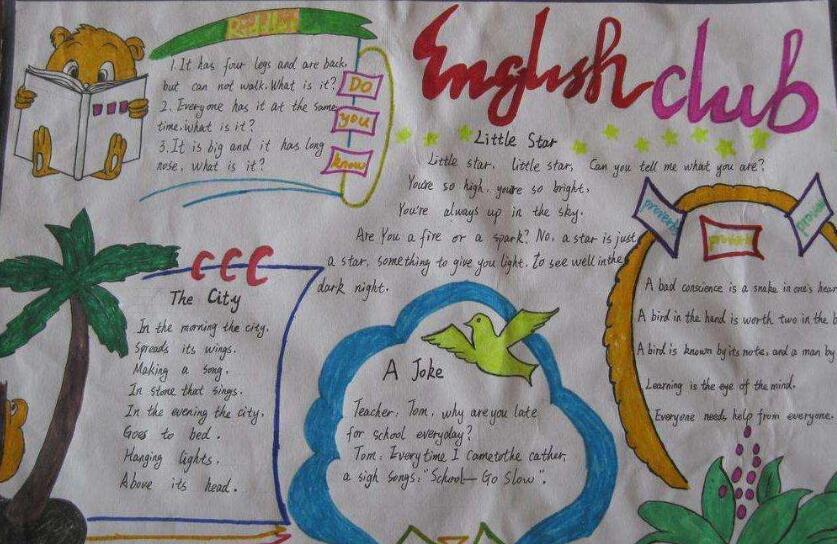 English club
1. It has four legs and are back,
but can not walk. What is it?
2. Everyone has it at the same
time. What is it?
3. It is big and it has long
nose. What is it?
Do
you
know
Little Star
Little star, little star, Can you tell me what you are?
You're so high, you're so bright,
You're always up in the sky.
Are You a fire or a spark? No, a star is just
a star, something to give you light. To see well in the
dark night.
CCC
The City
In the morning the city.
Spreads its wings.
Making a song.
In stone that sings.
In the evening the city.
Goes to bed.
Hanging lights.
Above its head.
A Joke
Teacher: Tom, why are you late
for school everyday?
Tom: Every time I came to the cather,
a sigh songs: "School— Go Slow".
proverb
proverb
A bad conscience is a snake in one's
A bird in the hand is worth two in the
A bird is known by its note, and a man by
Learning is the eye of the mind.
Everyone needs help from everyone.